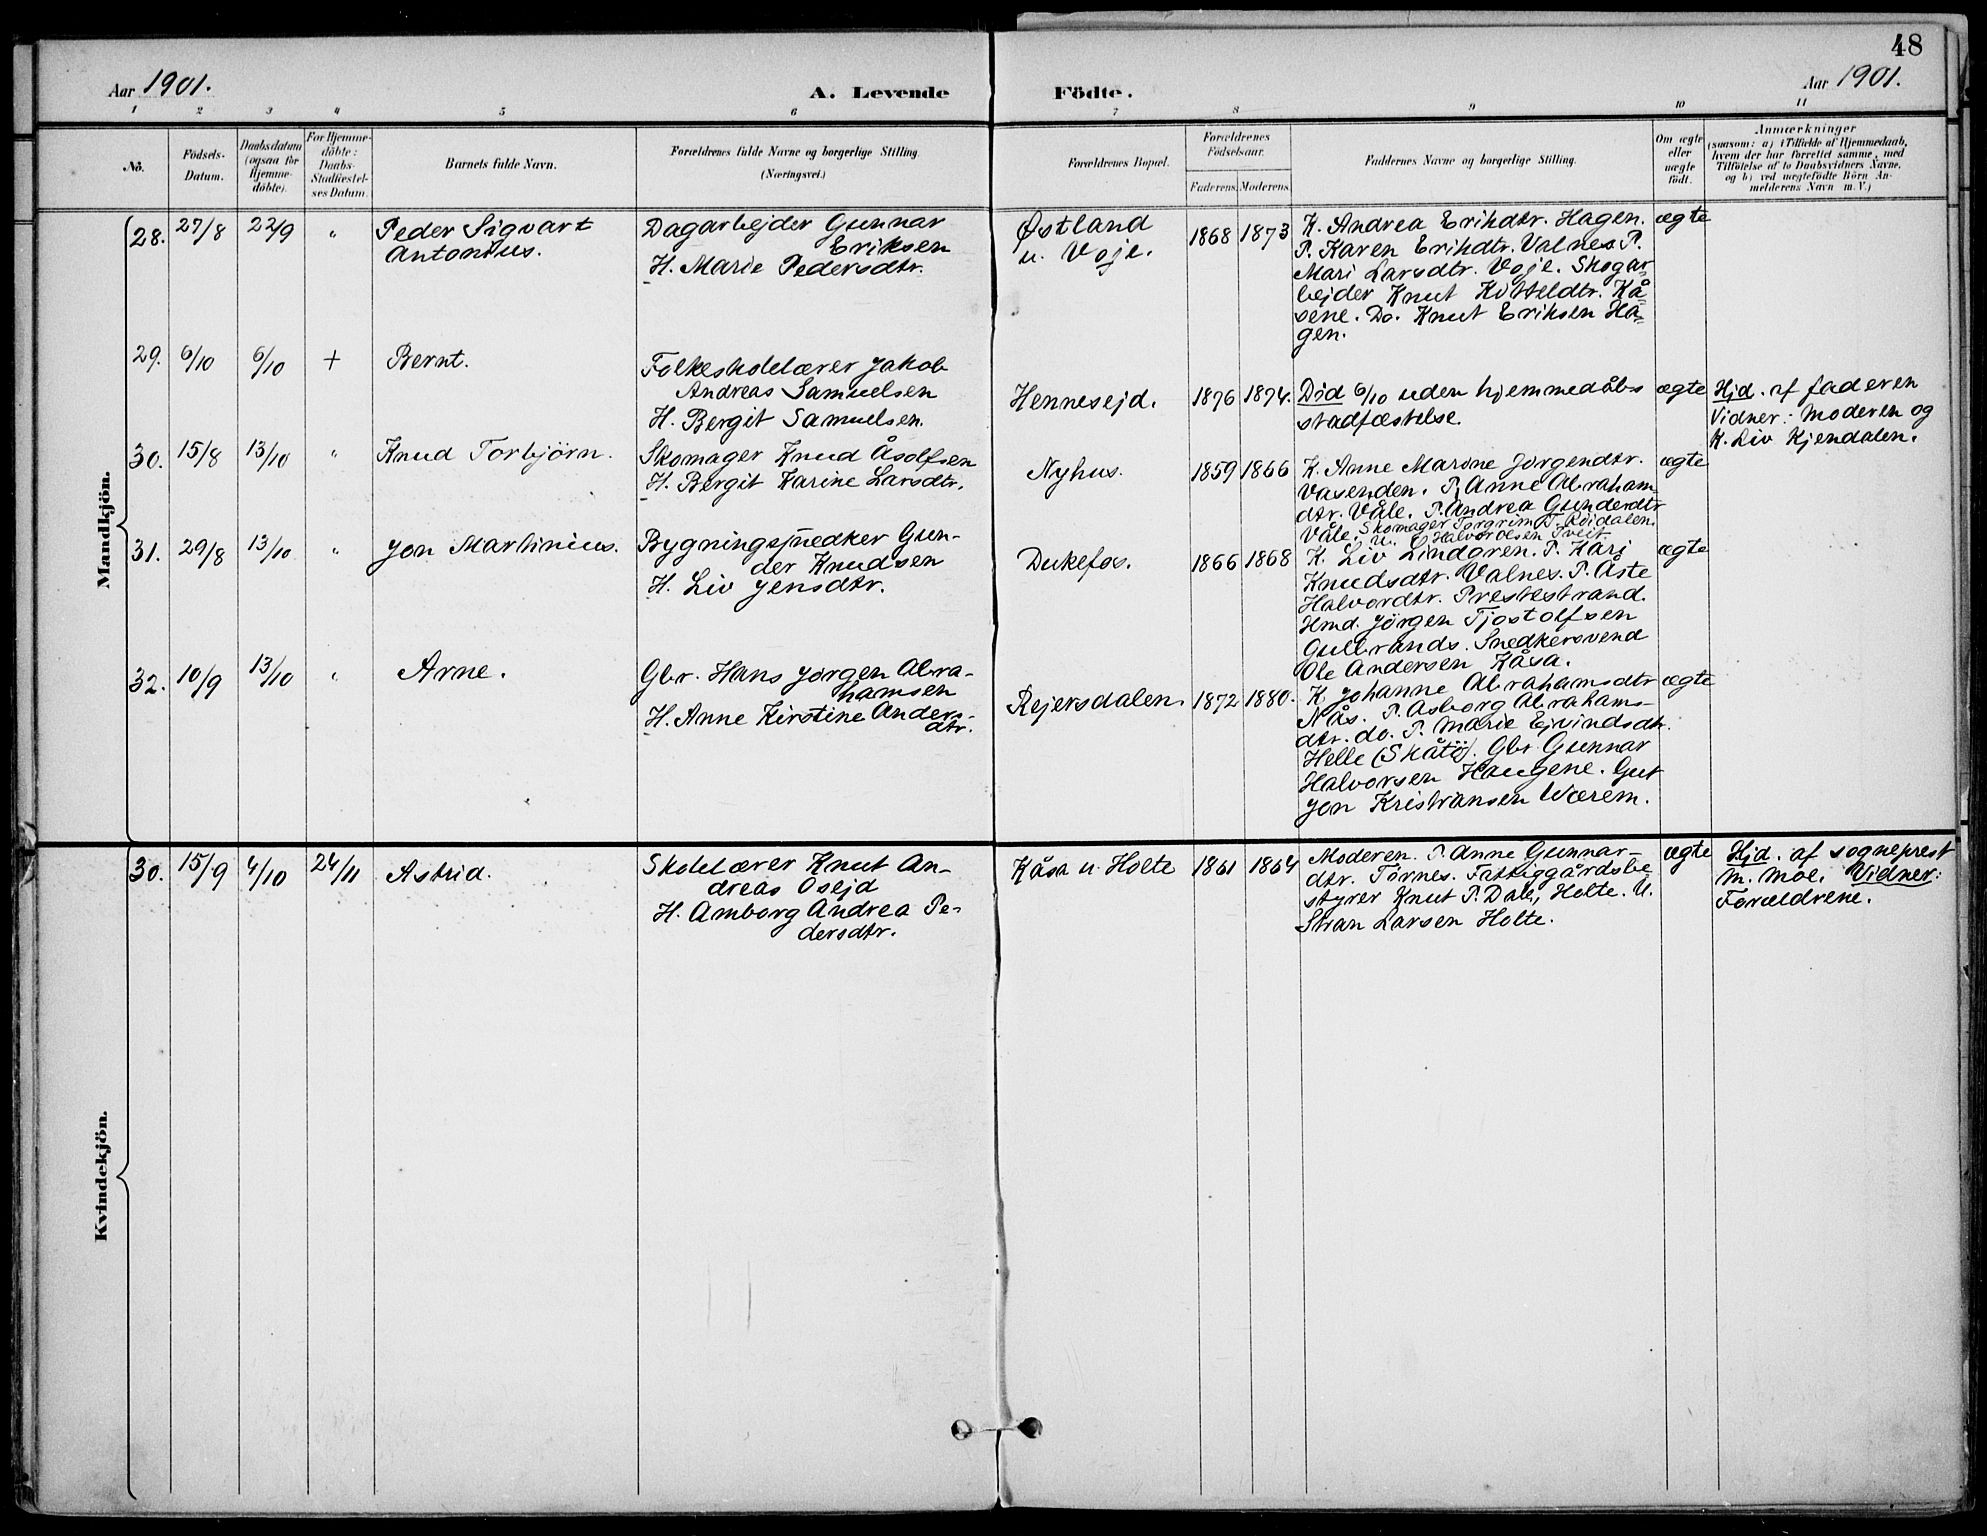 48
Aar 1901.
A. Levende
Födte.
Aar 1901.
1 2 3 4 5 6 7 8 9 10 11
No.
Födsels-
Datum.
Daabsdatum
(ogsaa for
Hjemme-
döbte).
For Hjemme-
döbte:
Daabs-
Stadfæstel-
ses Datum.
Barnets fulde Navn.
Forældrenes fulde Navne og borgerlige Stilling.
(Næringsvei.)
Forældrenes Bopæl.
Forældrenes
Födselsaar.
Faderens. Moderens.
Faddernes Navne og borgerlige Stilling.
Om ægte
eller
uægte
födt.
Anmærkninger
(saasom: a) i Tilfælde af Hjemmedaab,
hvem der har forrettet samme, med
Tilföielse af to Daabsvidners Navne,
og b) ved uægtefödte Börn An-
melderens Navn m. V.)
Mandkjön.
28. 27/8 22/9 "
Peder Sigvart
Antonius.
Dagarbejder Gunnar
Eriksen
H. Marie Pedersdtr.
Østland
u. Voje.
1868 1873
K. Andrea Erikdtr. Hagen.
P. Karen Erikdtr. Valnes. P.
Mari Larsdtr. Voje. Skogar-
bejder Knut Kittildtr. Kå-
sene. Do. Knut Eriksen Ha-
gen.
ægte
29. 6/10 6/10 +
Bernt.
Folkeskolelærer Jakob
Andreas Samuelsen
H. Bergit Samuelsen.
Hennesejd.
1876 1874.
Död 6/10 uden hjemmedåbs
stadfæstelse.
ægte
Hjd. af faderen
Vidner: Moderen og
K. Liv Kjendalen.
30. 15/8 13/10 "
Knud Torbjörn.
Skomager Knud Åsolfsen
H. Bergit Karine Larsdtr.
Nyhus.
1859 1866
K. Anne Marone Jörgendtr.
Vasenden. P. Anne Abraham
dtr. Våle. P. Andrea Gunderdtr
Våle. Skomager Torgrim T. Röidalen.
U. Halvorsen Tveit.
ægte
31. 29/8 13/10 "
Jon Martinius.
Bygningssnedker Gun-
der Knudsen
H. Liv Jensdtr.
Dukefos.
1866 1868
K. Liv Lindgren. P. Kari
Knudsdtr. Valnes. P. Åste
Halvordtr. Prestestrand.
Hmd. Jörgen Tjostolfsen
Gulbrands. Snedkersvend
Ole Andersen Kåsa.
ægte
32. 10/9 13/10 "
Arne.
Gbr. Hans Jörgen Abra-
hamsen
H. Anne Kirstine Anders-
dtr.
Rejersdalen.
1872 1880.
K. Johanne Abrahamsdtr
Nås. P. Asborg Abrahams-
dtr. do. P. Marie Ejvindsdtr.
Helle (Skåtö). Gbr. Gunnar
Halvorsen Haugene. Gut
Jon Kristiansen Wærem.
ægte
Kvindekjön.
30. 15/9 4/10 24/11
Astrid.
Skolelærer Knut An-
dreas Osejd
H. Amborg Andrea Pe-
dersdtr.
Kåsa u. Holte
1861 1864
Moderen. P. Anne Gunnar-
dtr. Törnes. Fattiggårdsbe
styrer Knut P. Dahl, Holte. U.
Stian Larsen Holte.
ægte
Hjd. af sogneprest
M. Moe. Vidner:
Forældrene.